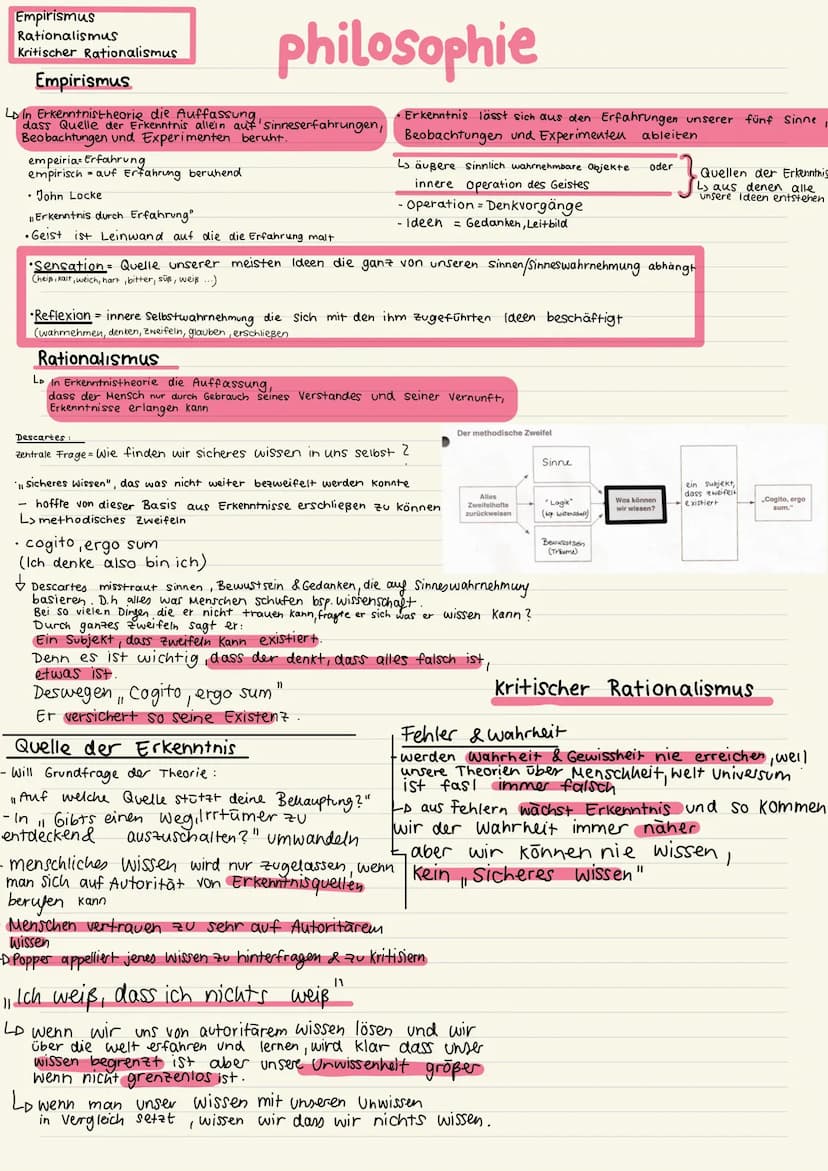 Empirismus
Rationalismus
Kritischer Rationalismus
philosophie
Empirismus
↳ In Erkenntnistheorie die Auffassung,
dass Quelle der Erkenntnis allein auf Sinneserfahrungen,
Beobachtungen und Experimenten beruht.
empeiria = Erfahrung
empirisch = auf Erfahrung beruhend
· John Locke
„Erkenntnis durch Erfahrung"
• Geist ist Leinwand auf die die Erfahrung malt
• Erkenntnis lässt sich aus den Erfahrungen unserer fünf Sinne,
Beobachtungen und Experimenten ableiten
↳ äußere sinnlich wahrnehmbare Objekte oder
innere Operation des Geistes
- Operation = Denkvorgänge
- Ideen = Gedanken, Leitbild
Quellen der Erkenntnis
↳ aus denen alle
unsere Ideen entstehen
• Sensation = Quelle unserer meisten Ideen die ganz von unseren Sinnen/Sinneswahrnehmung abhängt
(heiß, kalt, weich, hart, bitter, süß, weiß ...)
• Reflexion = innere Selbstwahrnehmung die sich mit den ihm zugeführten Ideen beschäftigt
(wahrnehmen, denken, zweifeln, glauben, erschließen
Rationalismus
↳ In Erkenntnistheorie die Auffassung,
dass der Mensch nur durch Gebrauch seines Verstandes und seiner Vernunft,
Erkenntnisse erlangen kann
Descartes:
zentrale Frage = Wie finden wir sicheres wissen in uns selbst?
· „sicheres Wissen", das was nicht weiter bezweifelt werden konnte
- hoffte von dieser Basis aus Erkenntnisse erschließen zu können
↳ methodisches zweifeln
· cogito, ergo sum
(Ich denke also bin ich)
Der methodische Zweifel
Alles
Zweifelhafte
zurückweisen
Sinne
"Logik"
(bsp. Wissenschaft)
Bewusstsein
(Träume)
Was können
wir wissen?
ein Subjekt,
dass zweifelt
existiert
„Cogito, ergo
sum."
↓ Descartes misstraut sinnen, Bewustsein & Gedanken, die auf Sinneswahrnehmung
basieren. D.h alles was Menschen schufen bsp. Wissenschaft.
Bei so vielen Dingen, die er nicht trauen kann, fragte er sich was er wissen kann?
Durch ganzes zweifeln sagt er:
Ein Subjekt, dass zweifeln kann existiert.
Denn es ist wichtig, dass der denkt, dass alles falsch ist,
etwas ist.
Deswegen „Cogito, ergo sum"
Er versichert so seine Existenz.
Kritischer Rationalismus
Quelle der Erkenntnis
- Will Grundfrage der Theorie:
„Auf welche Quelle stützt deine Behauptung?"
- In „Gibts einen Weg, Irrtümer zu
entdeckend auszuschalten?" umwandeln
- menschliches Wissen wird nur zugelassen, wenn
man sich auf Autorität von Erkenntnisquellen
berufen kann
Menschen vertrauen zu sehr auf Autoritärem
Wissen
↳ Popper appelliert jenes Wissen zu hinterfragen & zu kritisiern
„Ich weiß, dass ich nichts weiß"
↳ wenn wir uns von autoritärem wissen lösen und wir
über die welt erfahren und lernen, wird klar dass unser
wissen begrenzt ist aber unsere Unwissenheit größer
wenn nicht grenzenlos ist.
↳ wenn man unser wissen mit unseren Unwissen
in vergleich setzt, wissen wir dass wir nichts wissen.
Fehler & Wahrheit
- werden Wahrheit & Gewissheit nie erreichen, weil
unsere Theorien über Menschheit, Welt Universum
ist fast immer falsch
↳ aus Fehlern wächst Erkenntnis und so kommen
wir der Wahrheit immer näher
- aber wir können nie wissen,
Kein „Sicheres Wissen"